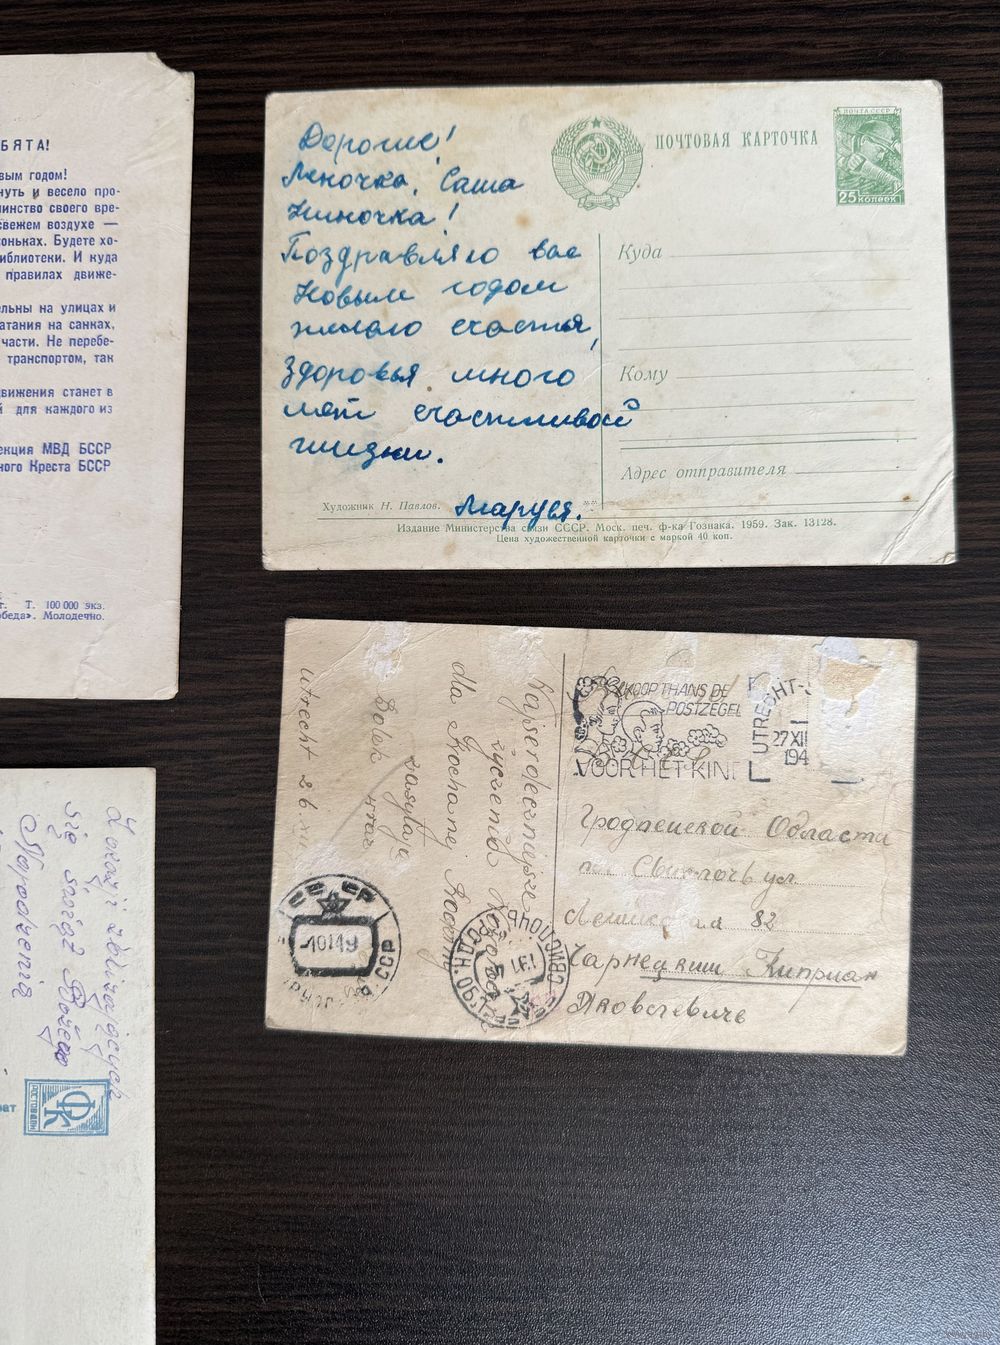 БЯТА!
вым годом!
нуть и весело про-
инство своего вре-
свежем воздухе —
оньках. Будете хо-
иблиотеки. И куда
правилах движе-
ельны на улицах и
атания на санках,
части. Не перебе-
транспортом, так
вижения станет в
й для каждого из
екция МВД БССР
ного Креста БССР
г. Т. 100 000 экз.
обеда». Молодечно.
Дорогие!
Леночка, Саша
Ниночка!
Поздравляю вас
Новым годом
желаю счастья,
здоровья много
лет счастливой
жизни.
Маруся.
ПОЧТОВАЯ КАРТОЧКА
ПОЧТА СССР
25 копеек
Куда
Кому
Адрес отправителя
Художник Н. Павлов.
Издание Министерства связи СССР. Моск. печ. ф-ка Гознака. 1959. Зак. 13128.
Цена художественной карточки с маркой 40 коп.
Utrecht 26. XII
Bolek
zasyłają
Najserdeczniejsze
życzenia
dla Kochanej Rodziny
KOOP THANS DE
POSTZEGEL
VOOR HET KIN
UTRECHT
27 XII
194
Гродненской Области
п. Свислочь ул.
82
Чарнецкий Киприан
Яковлевиче
СССР
10 1 49
СВИСЛОЧЬ
ГРОДН. ОБЛ
się
Bożego
Narodzenia
ФК